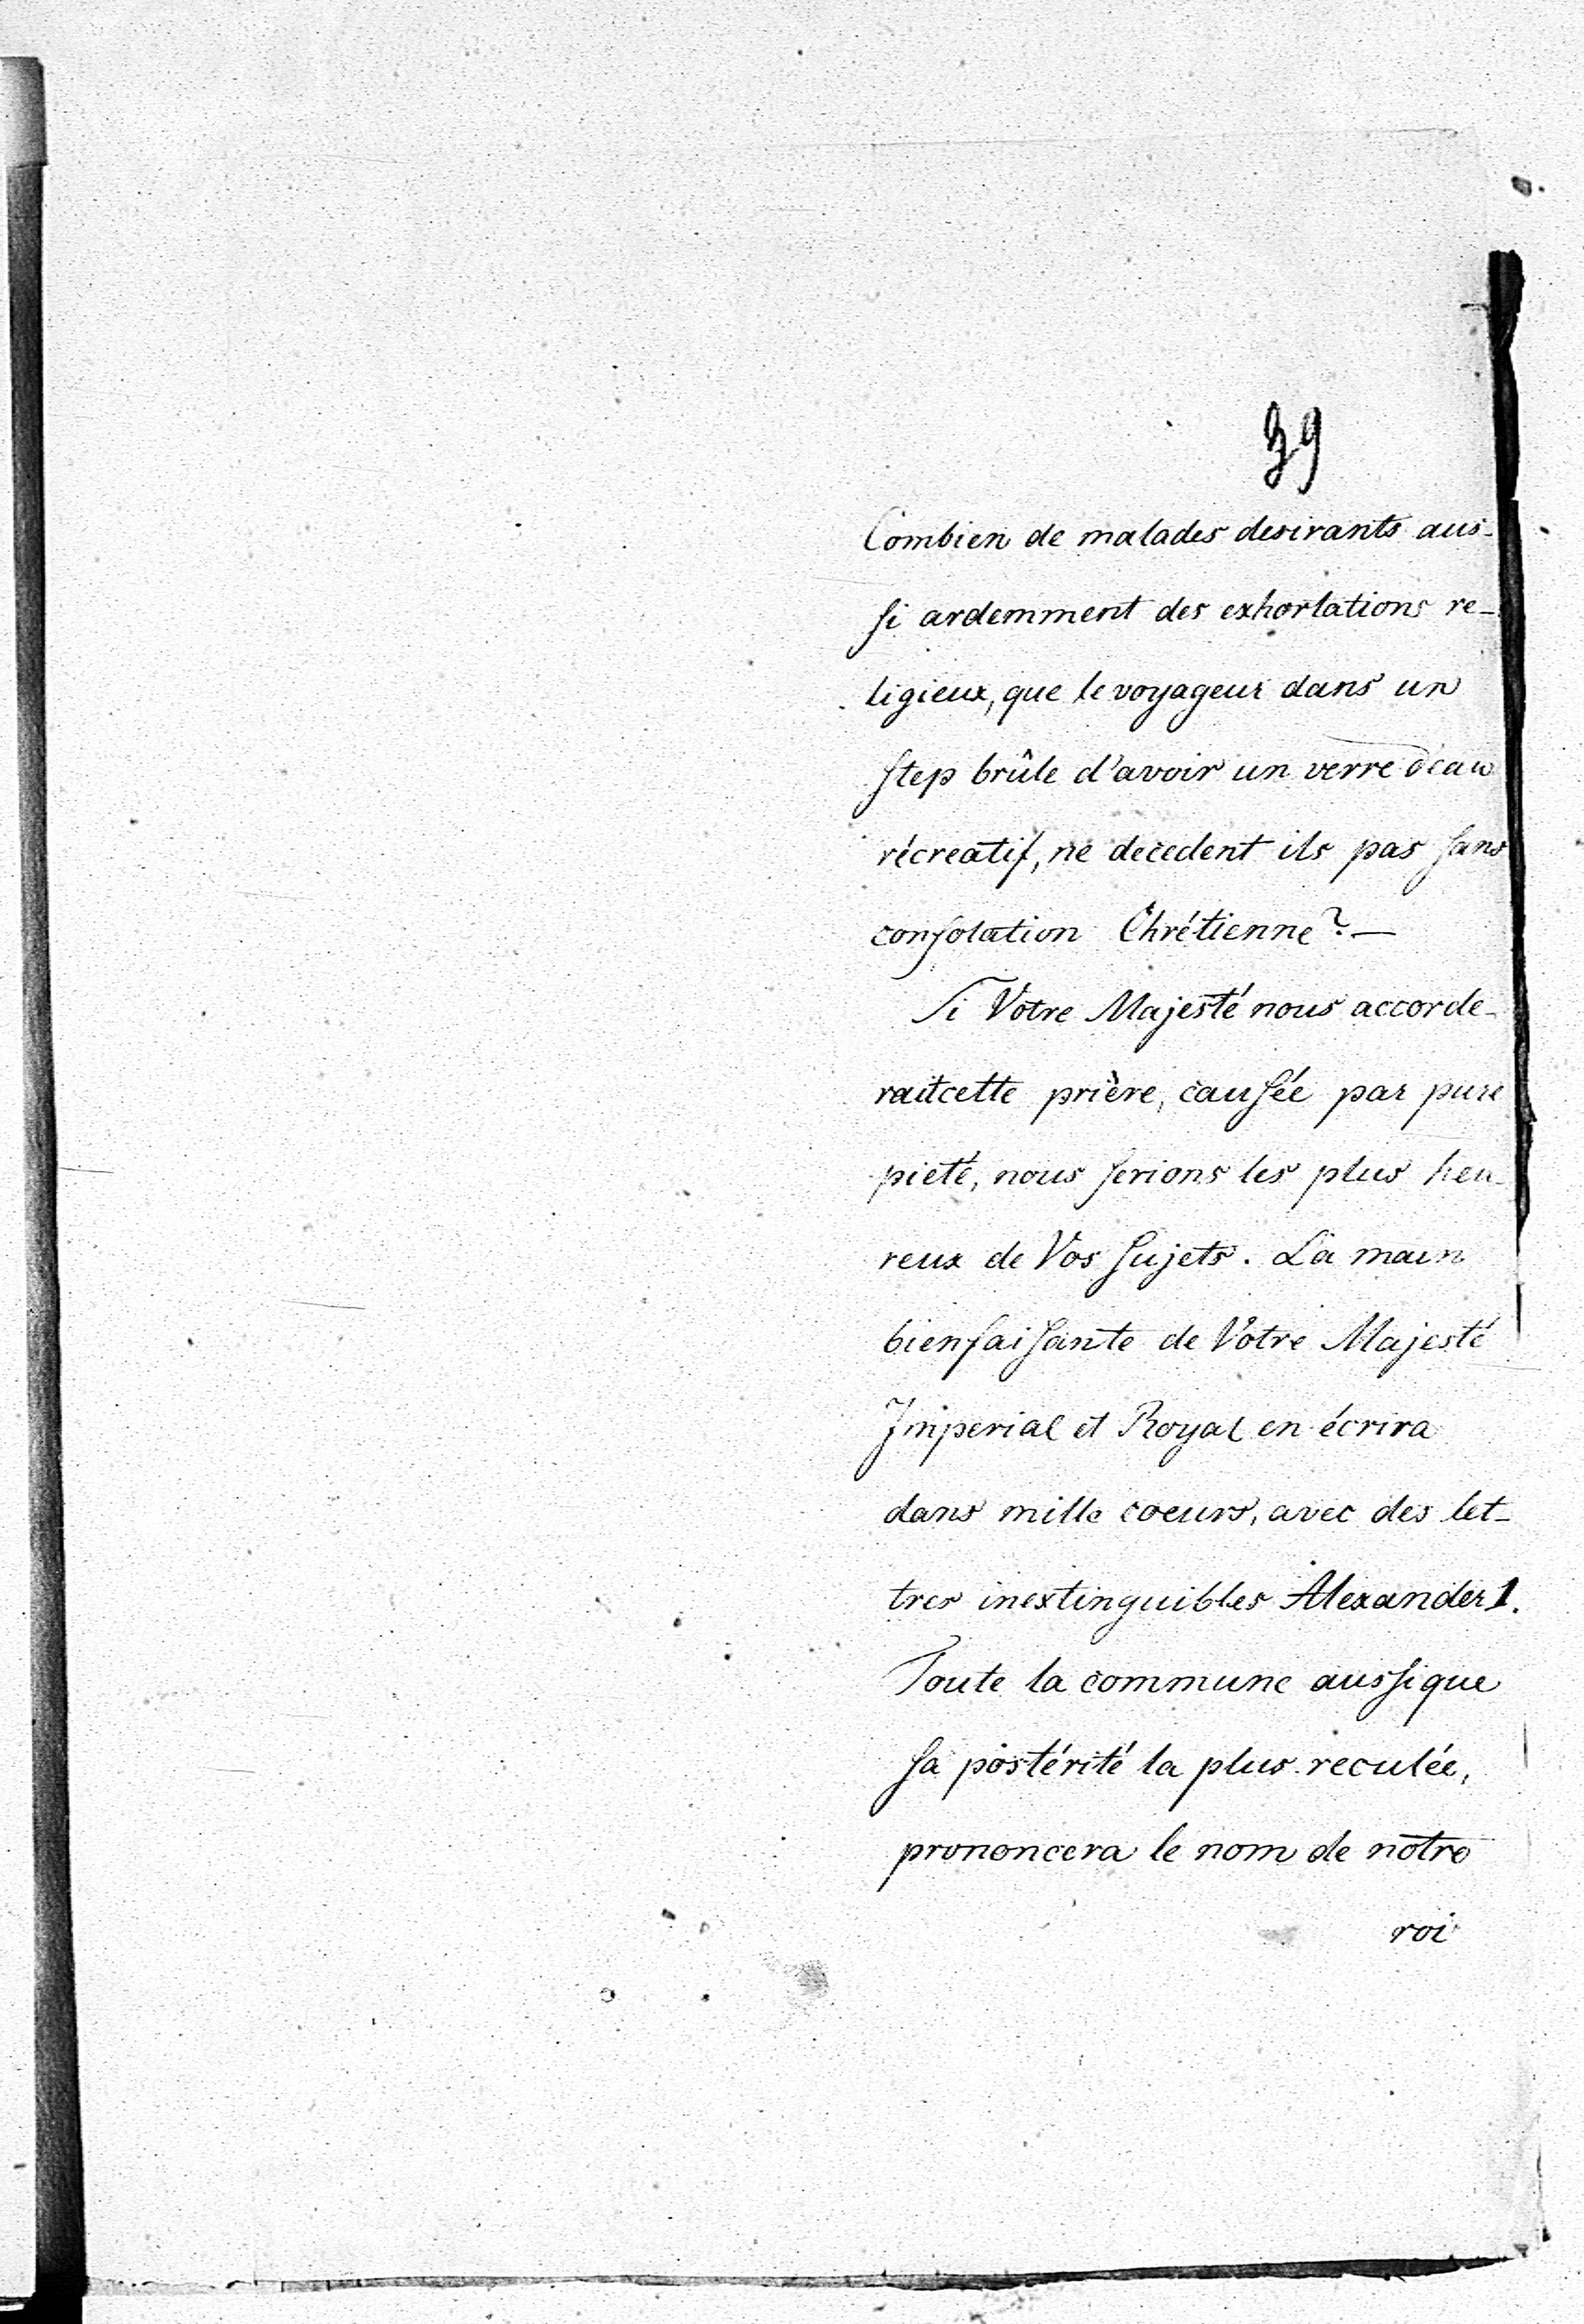 39
Combien de malades desirants aus-
si ardemment des exhortations re-
ligieux, que le voyageur dans un
step brûle d'avoir un verre d'eau
récreatif, ne decedent ils pas sans
consolation Chrétienne? —
Si Votre Majesté nous accorde-
rait cette prière, causée par pure
pieté, nous serions les plus heu-
reux de Vos Sujets. La main
bienfaisante de Votre Majesté
Imperial et Royal en écrira
dans mille coeurs, avec des let-
tres inextinguibles Alexander 1.
Toute la commune aussi que
sa postérité la plus reculée,
prononcera le nom de notre
roi